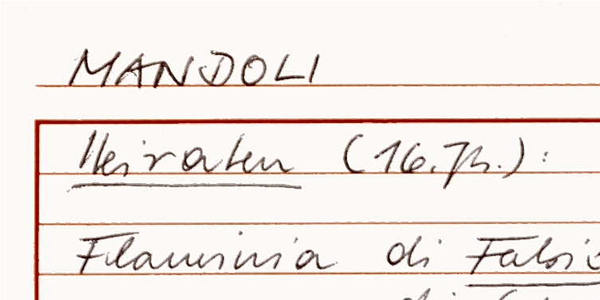 MANDOLI
Heiraten (16. Jh.):
Flaminia di Fabio
di